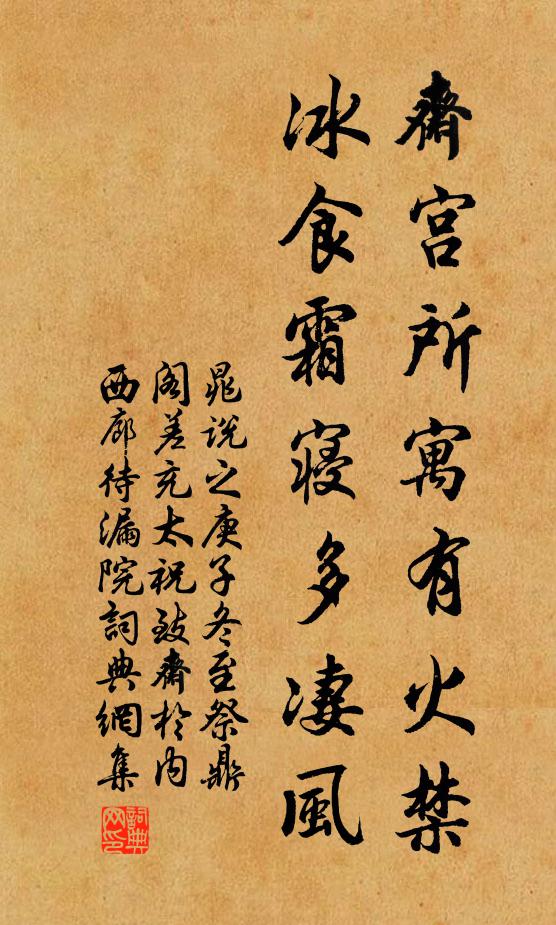 齋宮所寓有火禁
冰食霜寢多淒風
晁說之庚子冬至祭鼎
閣差充太祝致齋於內
西廊待漏院詞典網集
詞典网印